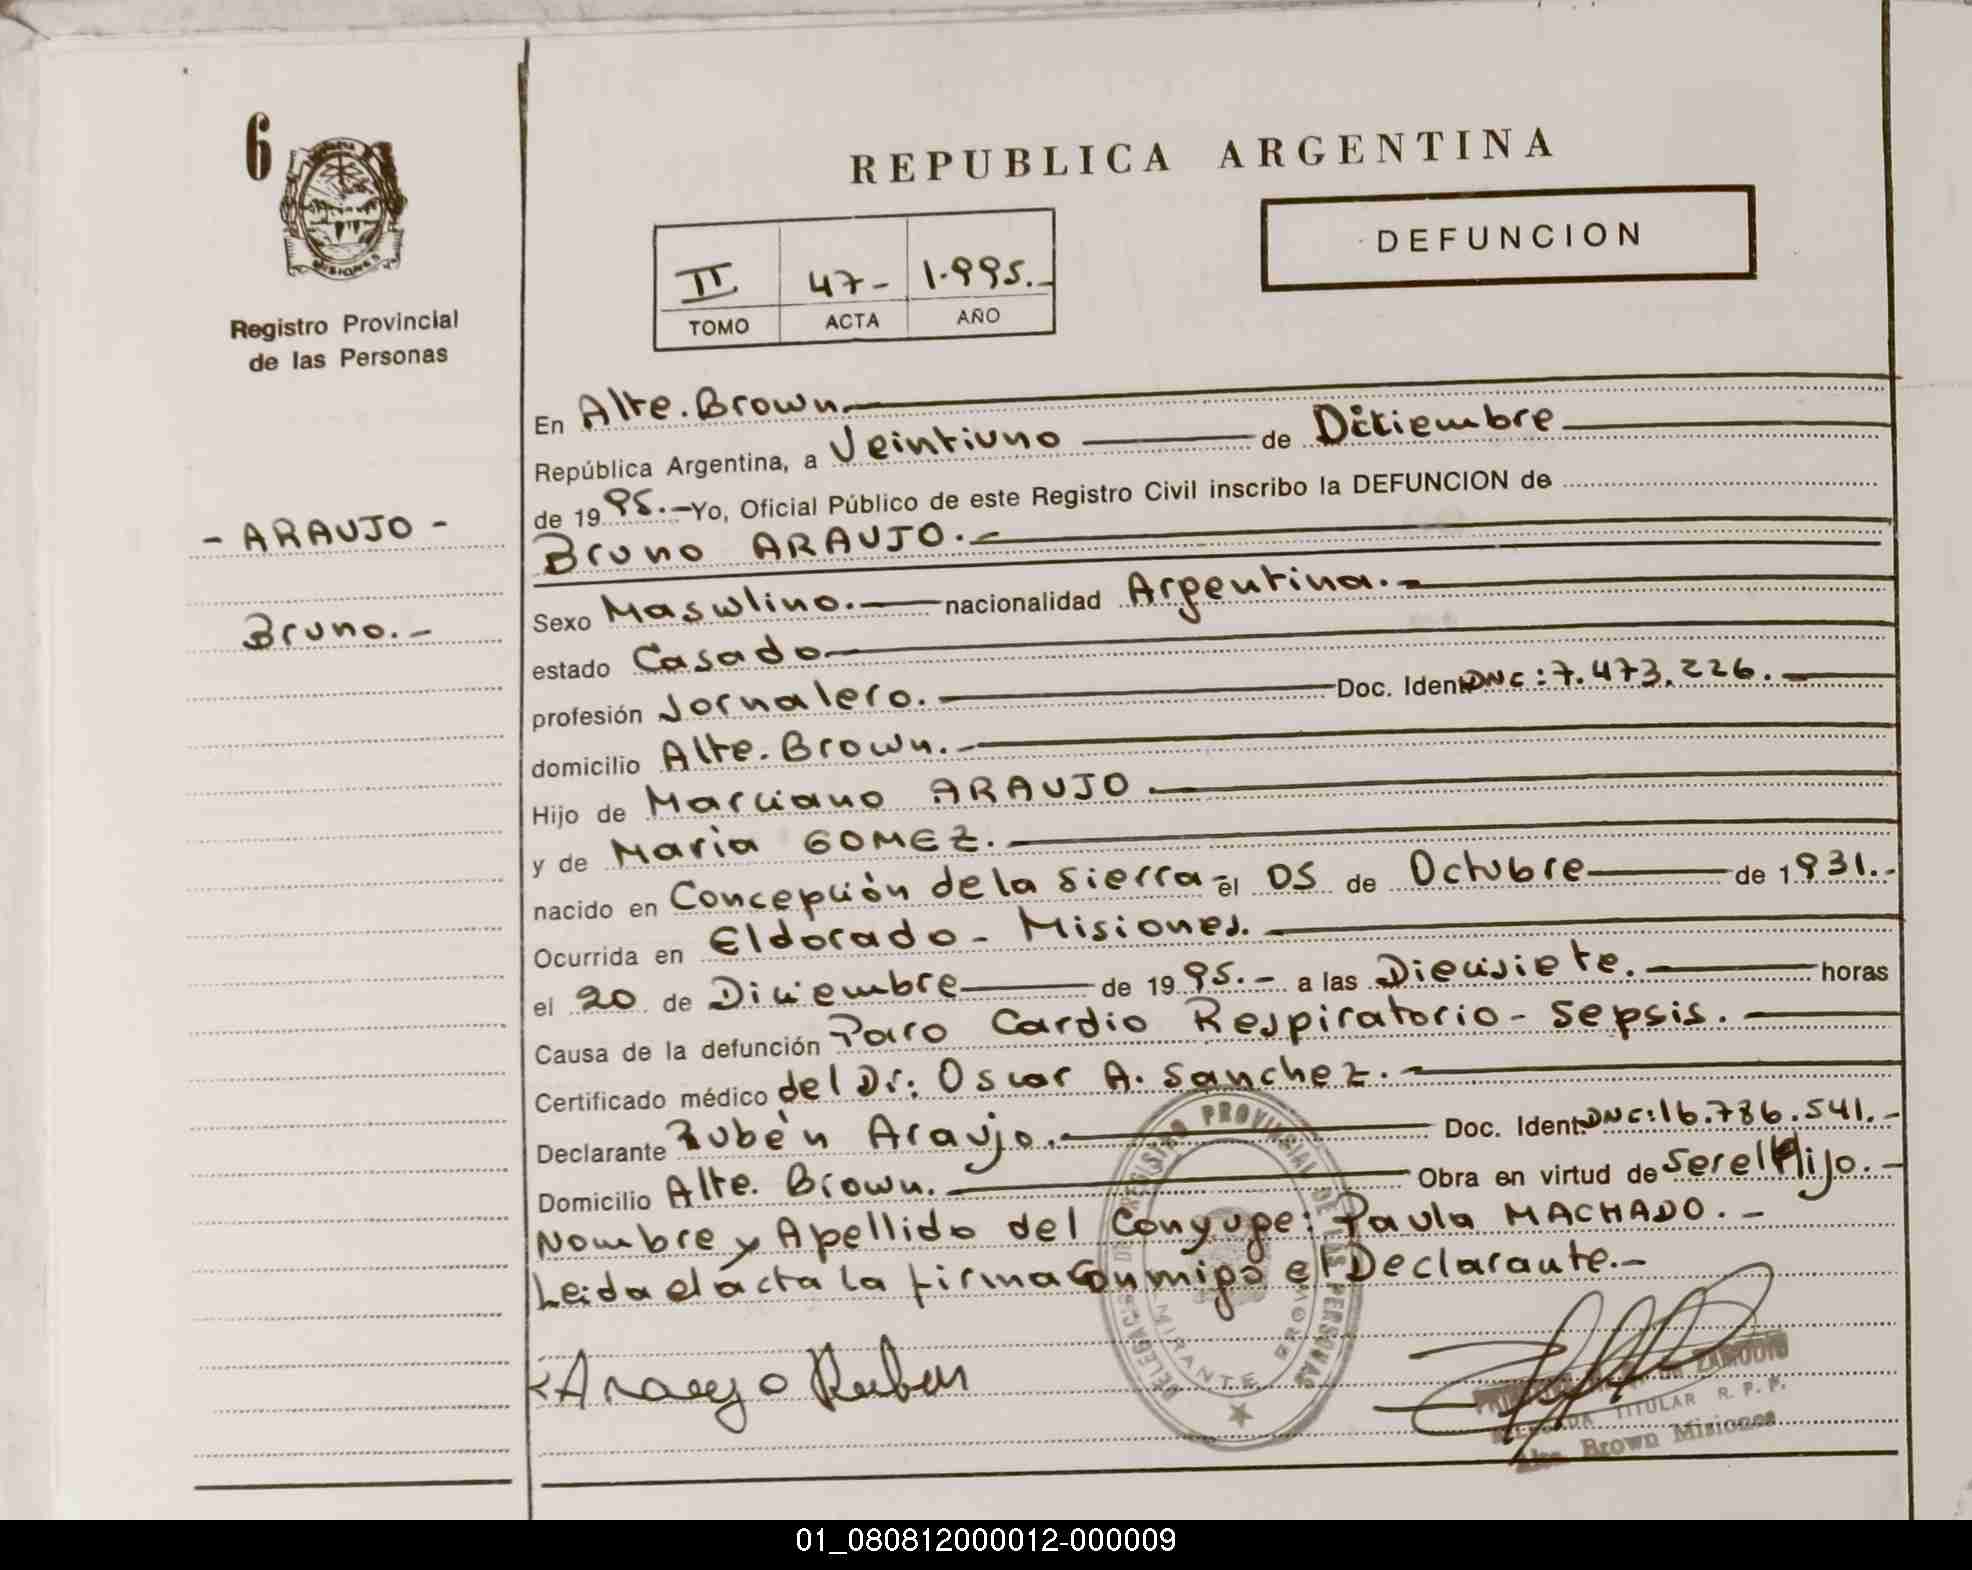 6
MISIONES
Registro Provincial
de las Personas
- ARAUJO -
Bruno.-
REPUBLICA ARGENTINA
DEFUNCION
II 47- 1.995.-
TOMO ACTA AÑO
En Alte. Brown
República Argentina, a Veintiuno de Diciembre
de 1995.- Yo, Oficial Público de este Registro Civil inscribo la DEFUNCION de
Bruno ARAUJO.-
Sexo Masculino. nacionalidad Argentina.-
estado Casado
profesión Jornalero. Doc. Ident. DNC: 7.473.226.
domicilio Alte. Brown.-
Hijo de Marciano ARAUJO
y de Maria GOMEZ.
nacido en Concepción de la Sierra el 05 de Octubre de 1931.-
Ocurrida en Eldorado - Misiones.
el 20 de Diciembre de 1995.- a las Diecisiete. horas
Causa de la defunción Paro Cardio Respiratorio - Sepsis.
Certificado médico del Dr: Oscar A. Sanchez.
Declarante Rubén Araujo. Doc. Ident. DNC: 16.786.541.-
Domicilio Alte. Brown. Obra en virtud de Ser el Hijo.-
Nombre y Apellido del Conyuge: Paula MACHADO.-
Leida el acta la firma Conmigo el Declarante.-
Araujo Ruben
REGISTRO PROVINCIAL DE LAS PERSONAS
BROWN
ZAMUDIO
TITULAR R. P. P.
Alte. Brown Misiones
01_080812000012-000009